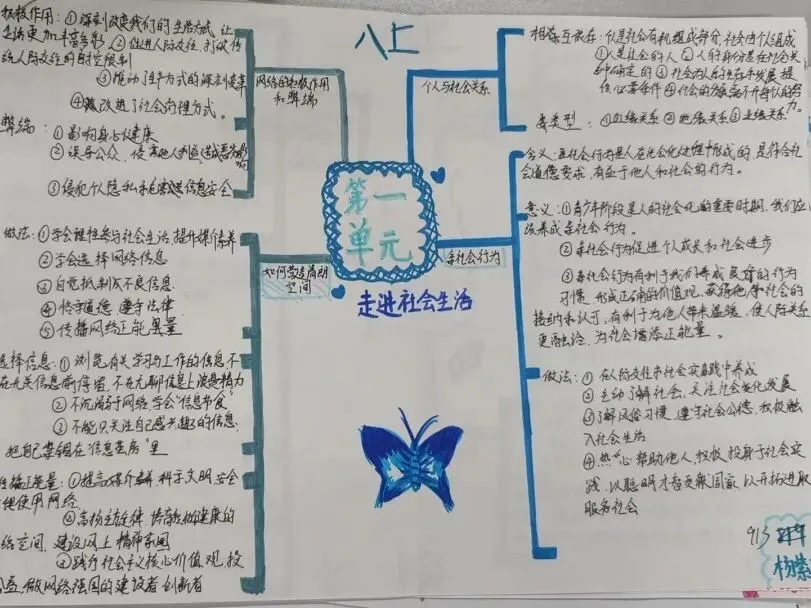 八上
第一
单元
走进社会生活
网络的积极作用
和弊端
积极作用：①深刻改变我们的生活方式，让
生活更加丰富多彩 ②促进人际交往，打破传
统人际交往的时空限制
③推动了生产方式的深刻变革
④改进了社会治理方式。
弊端：①影响身心健康
②误导公众，侵害他人利益
③侵犯个人隐私 信息安全
如何营造清朗
空间
做法：①学会理性参与社会生活，提高媒介素养
②学会选择网络信息
③自觉抵制不良信息
④恪守道德 遵守法律
⑤传播网络正能量
选择信息：①浏览有关学习与工作的信息，不
在无关信息前停留，不在无聊信息上浪费精力
②不沉溺于网络，学会“信息节食”
③不能只关注自己感兴趣的信息，
把自己禁锢在“信息茧房”里
正能量：①提高媒介素养 科学 文明 安全
使用网络
②高扬主旋律 健康的
络空间，建设网上精神家园
③践行社会主义核心价值观，投
做网络强国的建设者 创新者
个人与社会关系
相互依存：个人是社会有机组成部分，社会由个人组成
①人是社会的人 ②人的身份是在社会关
系中确定的 ③社会为人的生存和发展提
供必要条件 ④社会的发展离不开每个人的努力
类型：①血缘关系 ②地缘关系 ③业缘关系
亲社会行为
含义：亲社会行为是人在社会化过程中形成的，是符合社
会道德要求，有益于他人和社会的行为。
意义：①青少年阶段是人的社会化的重要时期，我们应
该养成亲社会行为。
②亲社会行为促进个人成长和社会进步
③亲社会行为有利于我们养成良好的行为
习惯 形成正确的价值观，获得他人和社会的
接纳和认可，有利于为他人带来温暖，使人际关系
更融洽，为社会增添正能量。
做法：①在人际交往和社会实践中养成
②主动了解社会，关注社会变化发展
③了解风俗习惯，遵守社会公德，积极融
入社会生活
④热心帮助他人，积极投身于社会实
践，以聪明才智贡献国家，以开拓进取
服务社会
913
杨紫